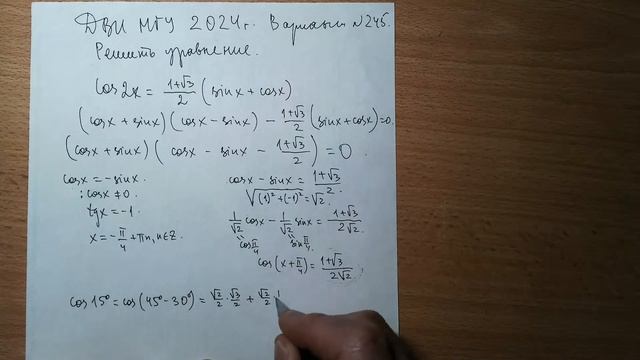 ДВИ МГУ 2024г. Вариант №245.
Решить уравнение.
cos2x = (1+√3)/2 (sinx + cosx)
(cosx + sinx)(cosx - sinx) - (1+√3)/2 (sinx + cosx) = 0.
(cosx + sinx)(cosx - sinx - (1+√3)/2) = 0.
cosx = -sinx
: cosx ≠ 0.
tgx = -1.
x = -π/4 + πn, n∈Z.
cosx - sinx = (1+√3)/2.
√((1)²+(-1)²) = √2.
1/√2 cosx - 1/√2 sinx = (1+√3)/(2√2)
cos π/4 sin π/4.
cos(x + π/4) = (1+√3)/(2√2)
cos15° = cos(45° - 30°) = √2/2 · √3/2 + √2/2